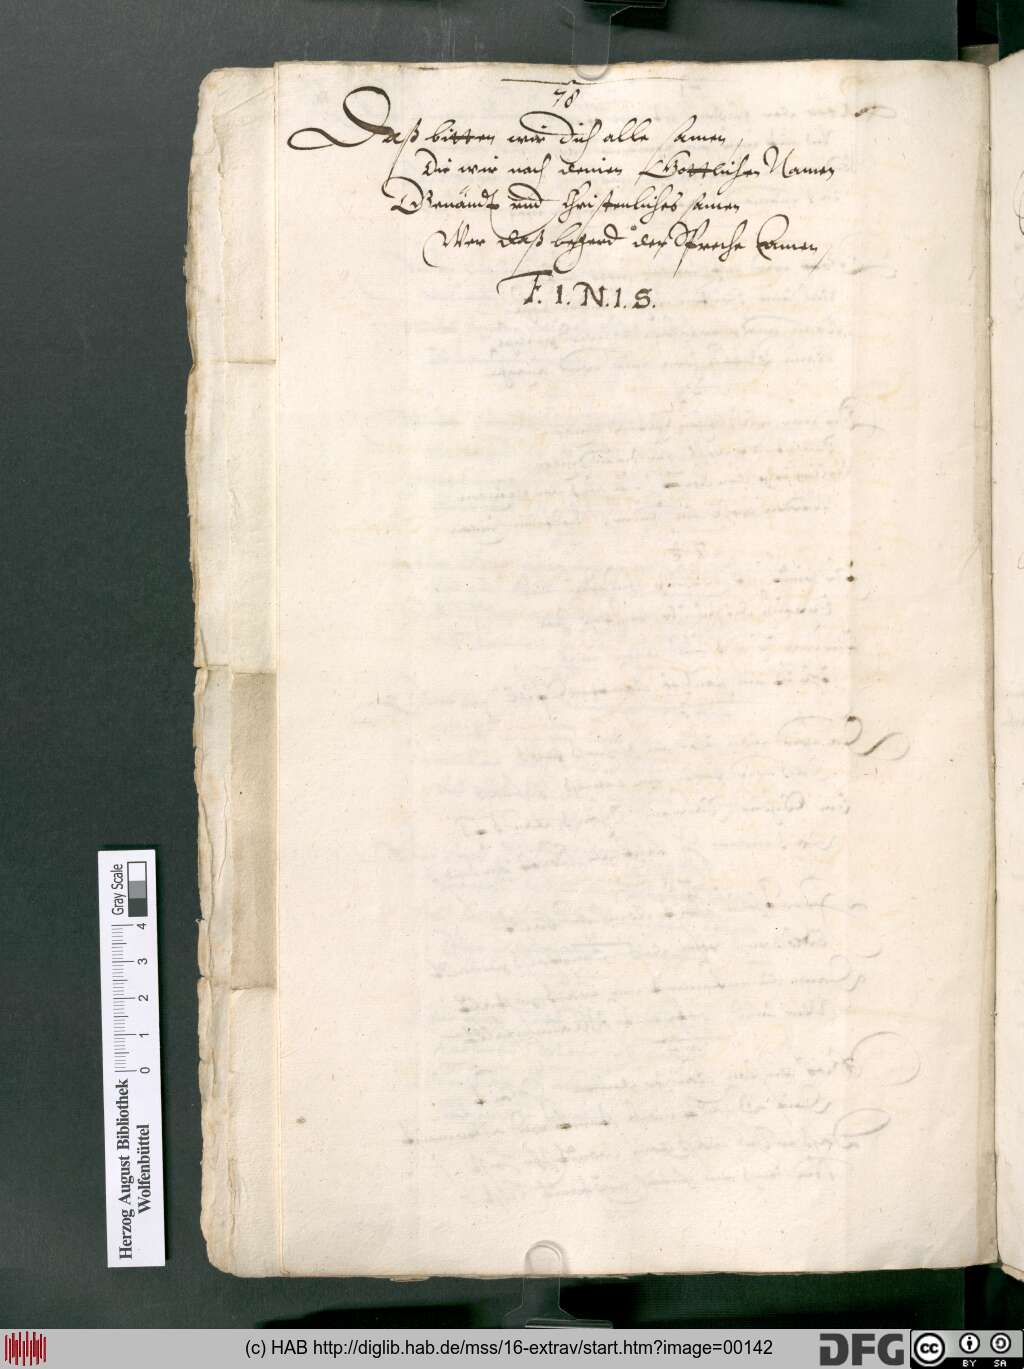 78
Daß bitten wir dich alle samen,
Die wir nach deinen Göttlichen Namen
Genändt vnd christenliches samen
Wer daß begerd der Spreche Aamen,
F. I. N. I. S.
Herzog August Bibliothek
Wolfenbüttel
0 1 2 3 4
Gray Scale
(c) HAB http://diglib.hab.de/mss/16-extrav/start.htm?image=00142
DFG
cc
BY SA